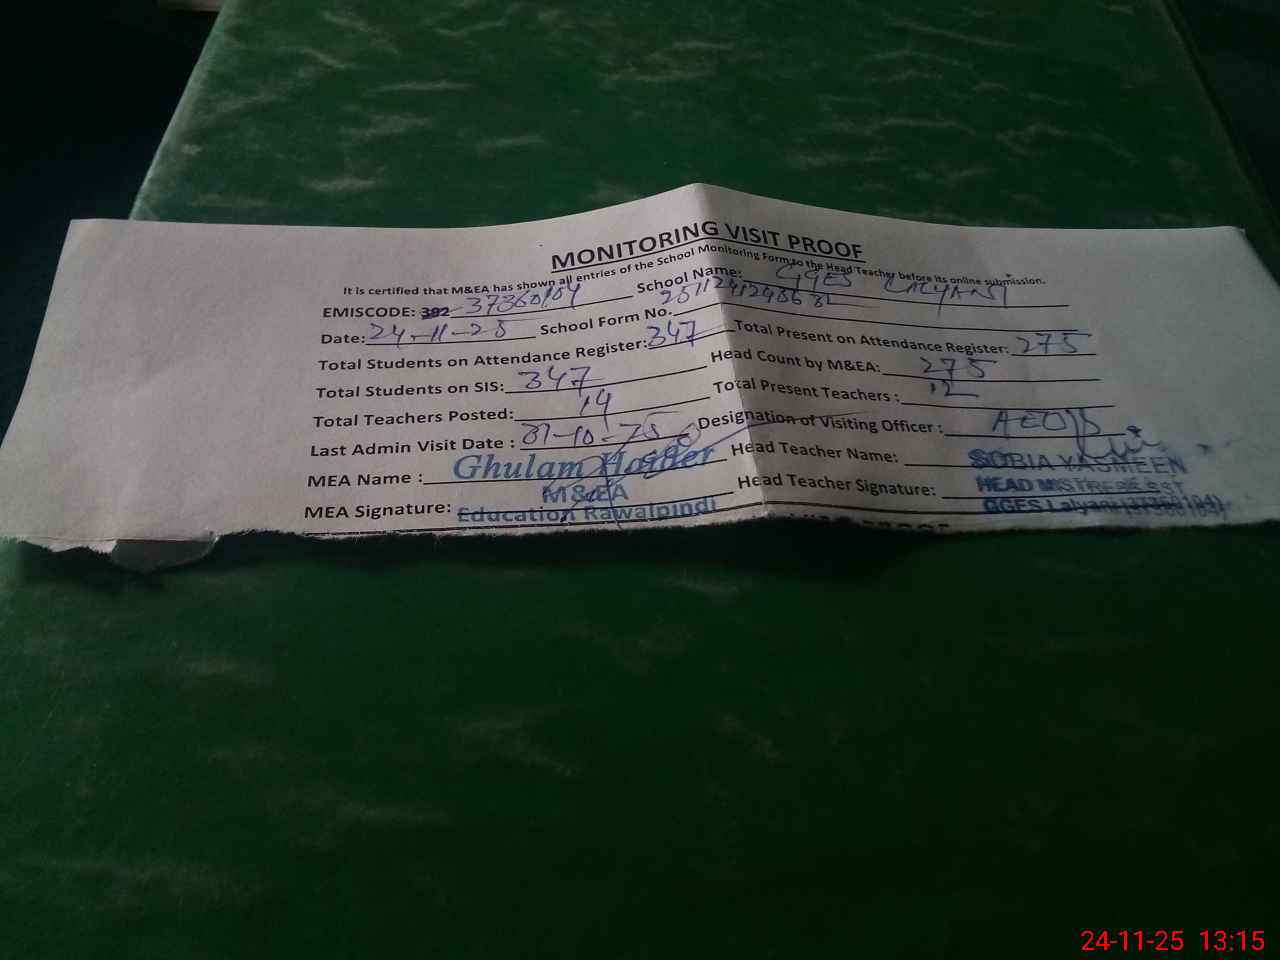 MONITORING VISIT PROOF
It is certified that M&EA has shown all entries of the School Monitoring Form to the Head Teacher before its online submission.
EMISCODE: 382 37360104 School Name: GGES LALYANI
Date: 24-11-25 School Form No.
Total Students on Attendance Register: 347 Total Present on Attendance Register: 275
Total Students on SIS: 347 Head Count by M&EA: 275
Total Teachers Posted: 14 Total Present Teachers : 12
Last Admin Visit Date : 31-10-25 Designation of Visiting Officer : AEO
MEA Name : Ghulam Haider Head Teacher Name: SOBIA YASMEEN
M&EA HEAD MISTRERE SST
MEA Signature: Education Rawalpindi Head Teacher Signature: GGES Lalyani
24-11-25 13:15